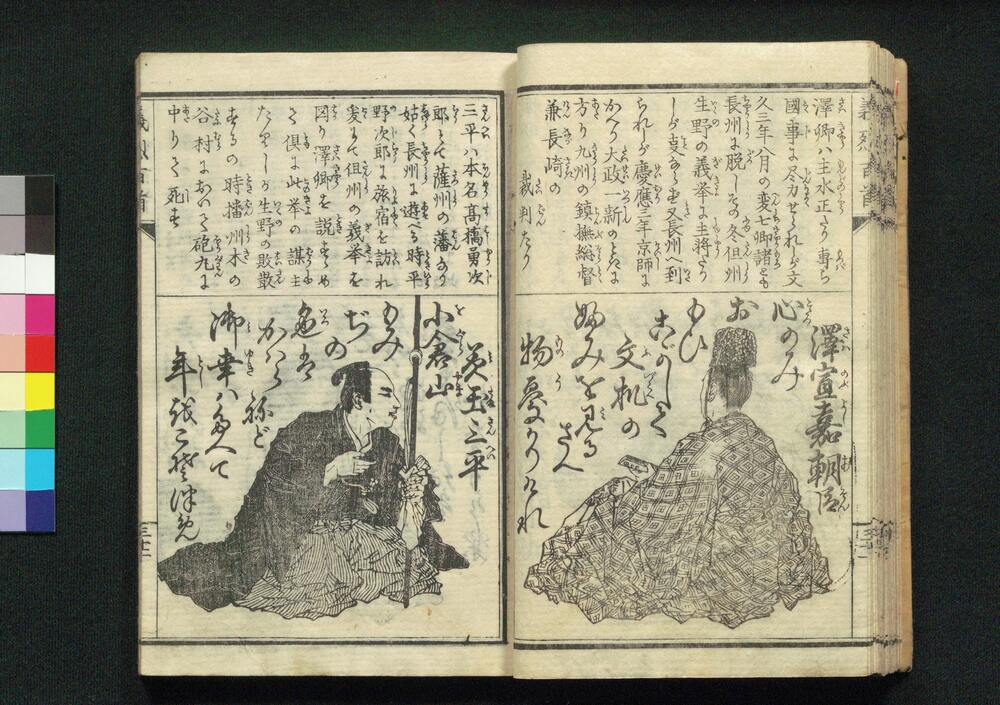 澤卿ハ主水正たり専ら
國事に尽力せられしが文
久三年八月の変七卿諸とも
長州に脱しその冬但州
生野の義挙に主将たり
しが
又長州へ到
られしが慶應三年京師に
かへり大政一新のときに
方り九州の鎮撫総督
兼長崎の
裁判たり
澤宣嘉朝臣
心のみ
お
もひ
こがして
文机の
ふみを見る
さへ
物憂かりけれ
三平ハ本名高橋勇次
郎とて薩州の藩なり
姑く長州に遊べる時平
野次郎に旅宿を訪れ
爰にて但州の義挙を
図り澤卿を説すゝめ
て倶に此挙の謀主
たりしが生野の敗散
するの時播州木の
谷村において砲丸に
中りて死す
美玉三平
小倉山
もみ
ぢの
色は
かはら
ねど
御幸ハ
年
義烈百首